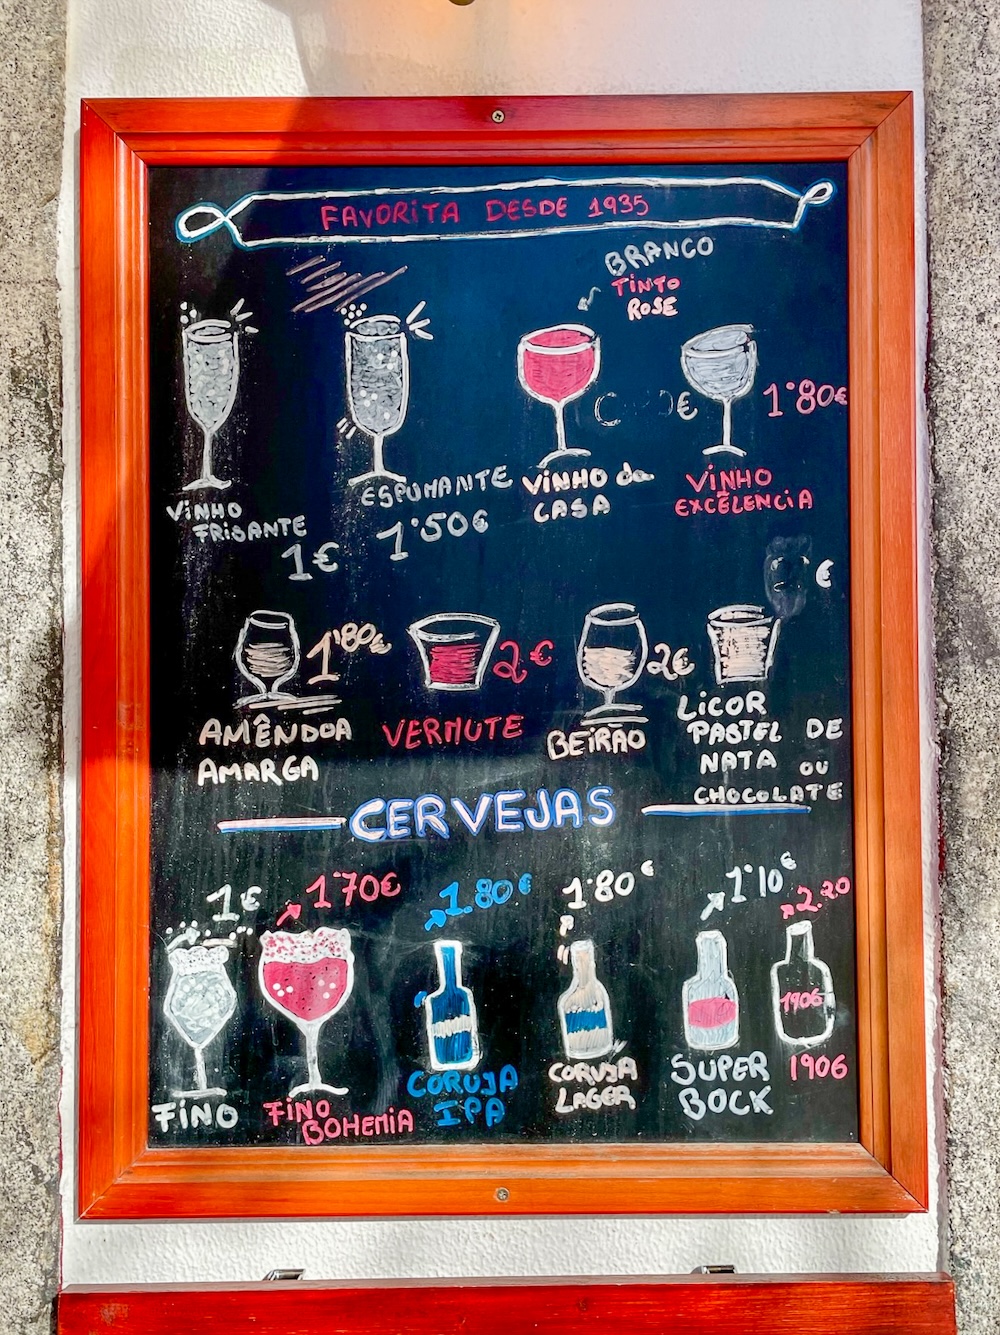 FAVORITA DESDE 1935
BRANCO
TINTO
ROSE
€
1'80€
VINHO
FRISANTE
1€
ESPUMANTE
1'50€
VINHO da
CASA
VINHO
EXCÊLENCIA
€
1'80€
2€
2€
AMÊNDOA
AMARGA
VERMUTE
BEIRÃO
LICOR
PASTEL DE
NATA OU
CHOCOLATE
CERVEJAS
1€
1'70€
1.80€
1'80€
1'10€
2.20
1906
FINO
FINO
BOHEMIA
CORUJA
IPA
CORUJA
LAGER
SUPER
BOCK
1906